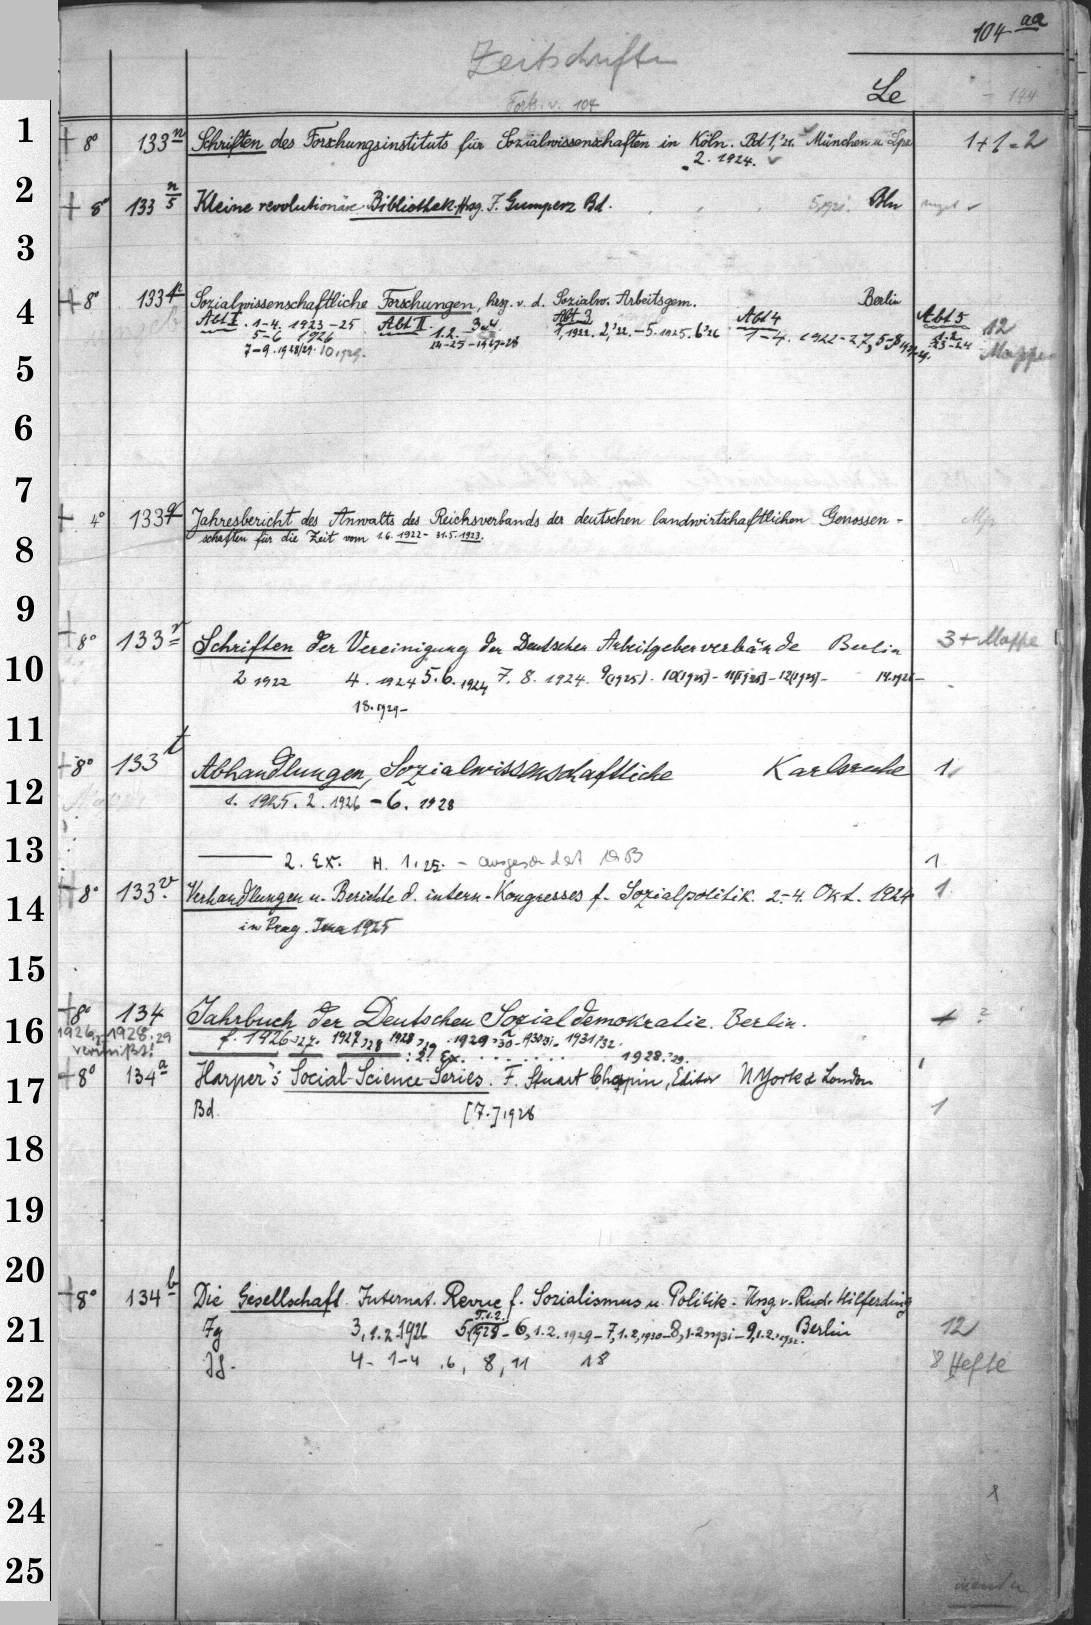 104 aa
Zeitschriften
Forts. v. 104
Le
144
1
+ 8° 133 n Schriften des Forschungsinstituts für Sozialwissenschaften in Köln. Bd 1,'21. München u. Lpz 1+1=2
2. 1924.
2
+ 8° 133 n/5 Kleine revolutionäre Bibliothek, Hrsg. J. Gumperz Bd. Bln
3
+ 8° 133 p Sozialwissenschaftliche Forschungen, hrsg. v. d. Sozialw. Arbeitsgem. Berlin
4
Abt I. 1-4. 1923-25 Abt II. 1.2. 3 u 4. Abt 3 1, 1922. 2,'22. - 5. 1925. 6'26 Abt 4 1-4. 1922-27, 5-8 Abt 5 1-2 23-24 12
5-6 1926 24-25-1927-28 Mappe
7-9. 1928/29. 10 1929.
5
6
7
+ 4° 133 q Jahresbericht des Anwalts des Reichsverbands der deutschen landwirtschaftlichen Genossen- Mp
schaften für die Zeit vom 1.6. 1922 - 31.5. 1923.
8
9
+ 8° 133 r Schriften der Vereinigung der Deutschen Arbeitgeberverbände Berlin 3 + Mappe
10
2 1922 4. 1924 5. 6. 1924 7. 8. 1924. 9(1925). 10(1925) - 11(1925) - 12(1925) -
18. 1929 -
11
+ 8° 133 t Abhandlungen, Sozialwissenschaftliche Karlsruhe 1
12
1. 1925. 2. 1926 - 6. 1928
13
2. Ex. H. 1. 25. - 1
+ 8° 133 v. Verhandlungen u. Berichte d. intern. Kongresses f. Sozialpolitik. 2.-4. Okt. 1924 1
14
in Prag. Jena 1925
15
+ 8° 134 Jahrbuch der Deutschen Sozialdemokratie. Berlin. ?
16
1926, 1928. 29 f. 1926 '27. 1927 '28 1928 '29 1929 '30 - 1930 31 - 1931/32.
vermißt! : 2. Ex. 1928. '29.
+ 8° 134 a Harper's Social Science Series. F. Stuart Chapin, Editor N York & London
17
Bd. [7.] 1928 1
18
19
20
+ 8° 134 b Die Gesellschaft. Internat. Revue f. Sozialismus u. Politik. Hrsg. v. Rud. Hilferding
21
Jg 3, 1.2. 1926 5, 1.2. 1928 - 6, 1.2. 1929 - 7, 1.2, 1930 - 8, 1.2 1931 - 9, 1.2. 1932. Berlin 12
Jg. 4 - 1-4 .6, 8, 11 18 8 Hefte
22
23
24
25